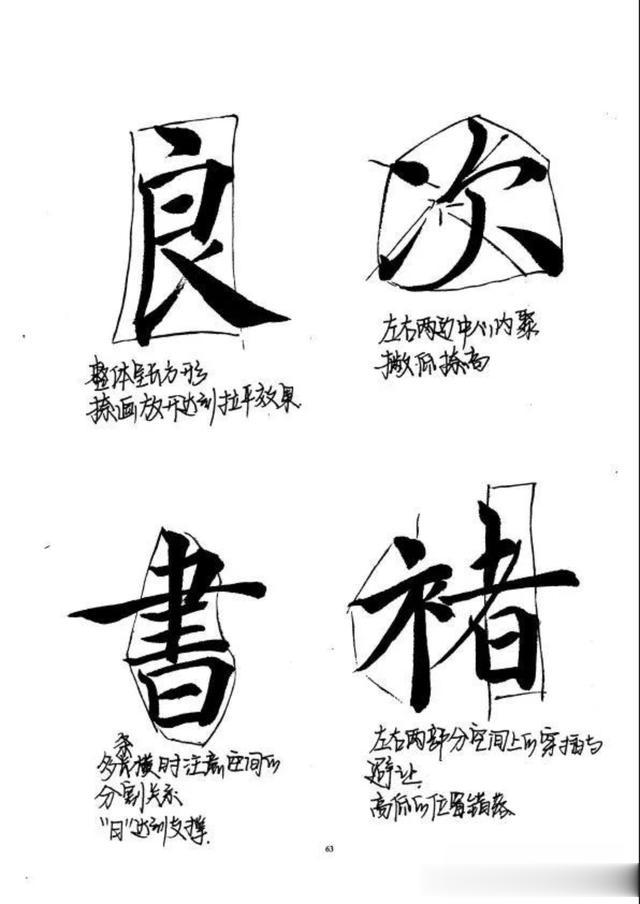 良
次
整体呈长方形
捺画放开达到拉平效果.
左右两边中心内聚
撇低捺高
書
褚
多条横时注意空间的
分割关系
"日"达到支撑.
左右两部分空间上的穿插与
避让.
高低的位置错落.
63